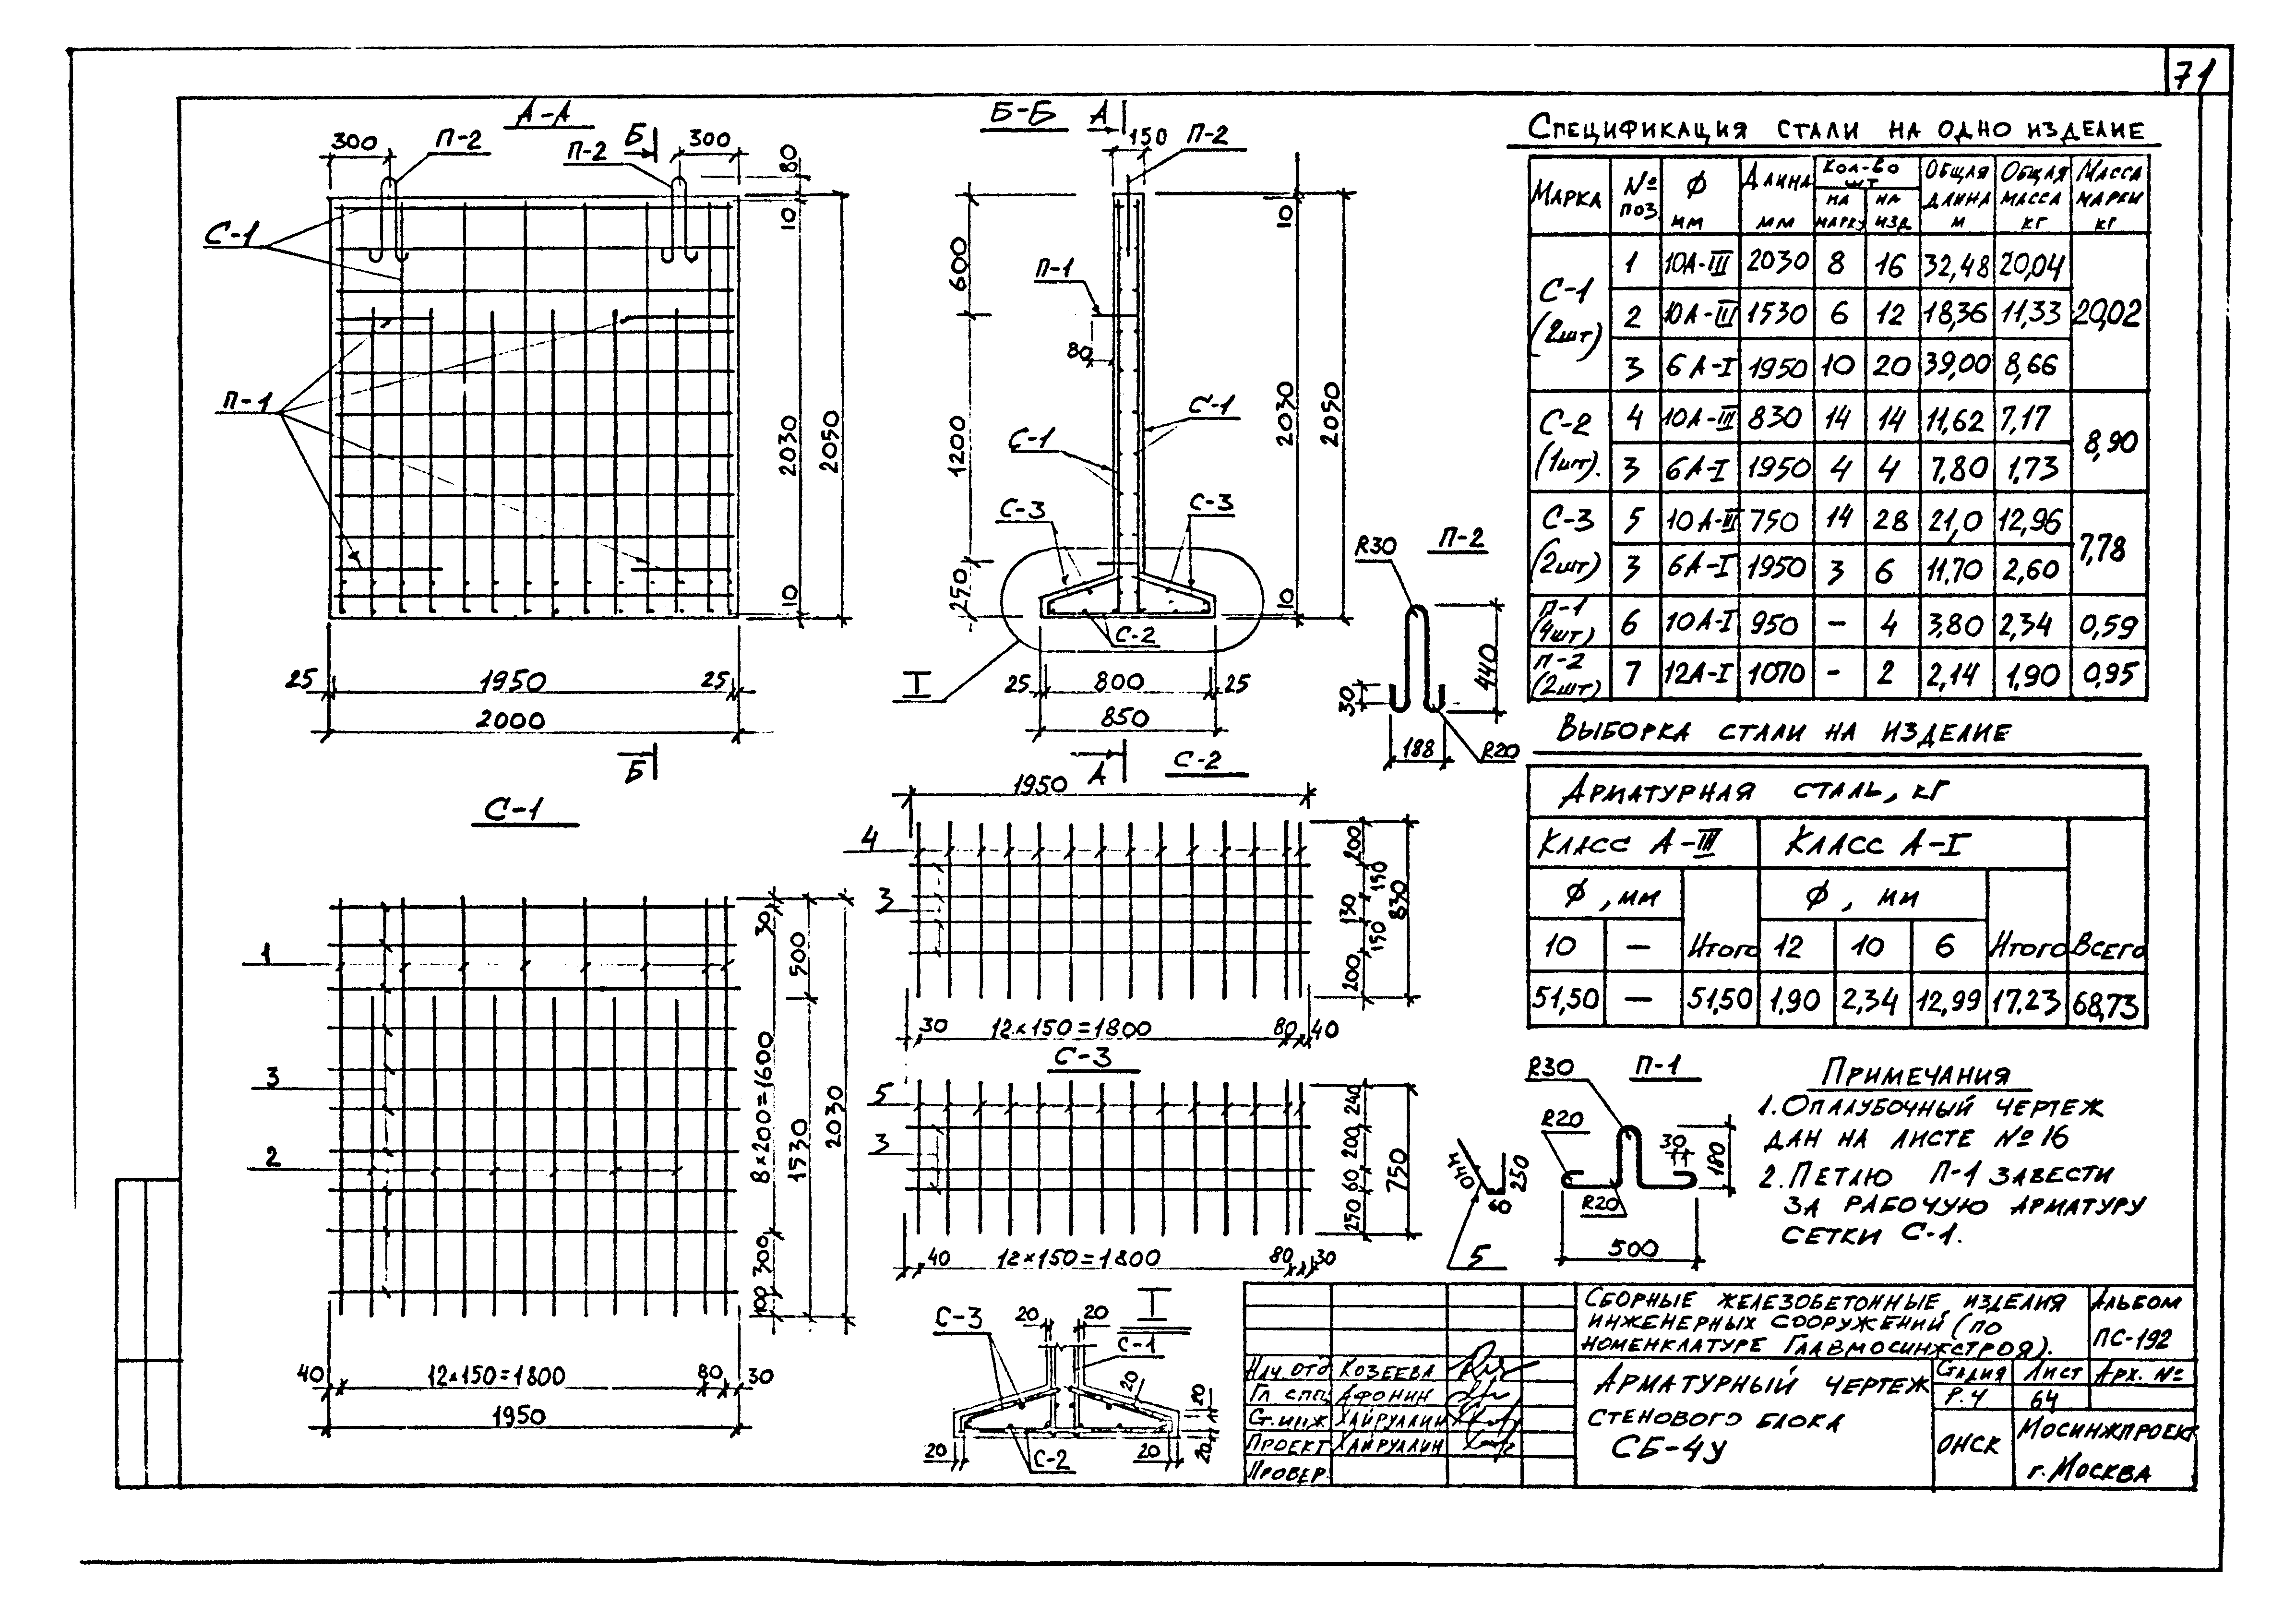 71
А-А
300
П-2
П-2
Б
300
80
С-1
10
П-1
2030
2050
10
25
1950
25
2000
Б
Б-Б
А
150
П-2
10
600
П-1
80
С-1
С-1
1200
2030
2050
С-3
С-3
250
10
С-2
I
25
800
25
850
А
R30
П-2
440
30
188
R20
Спецификация стали на одно изделие
Марка
№ поз
Ф мм
Длина мм
Кол-во шт
на марку
на изд.
Общая длина м
Общая масса кг
Масса марки кг
С-1 (2шт)
1 10А-III 2030 8 16 32,48 20,04
20,02
2 10А-III 1530 6 12 18,36 11,33
3 6А-I 1950 10 20 39,00 8,66
С-2 (1шт).
4 10А-III 830 14 14 11,62 7,17
8,90
3 6А-I 1950 4 4 7,80 1,73
С-3 (2шт)
5 10А-III 750 14 28 21,0 12,96
7,78
3 6А-I 1950 3 6 11,70 2,60
П-1 (4шт) 6 10А-I 950 – 4 3,80 2,34 0,59
П-2 (2шт) 7 12А-I 1070 – 2 2,14 1,90 0,95
Выборка стали на изделие
Арматурная сталь, кг
Класс А-III
Класс А-I
Ф, мм
Ф, мм
10 – Итого 12 10 6 Итого Всего
51,50 – 51,50 1,90 2,34 12,99 17,23 68,73
С-1
1
3
2
30
500
8×200=1600
1530
2030
300
100
40
12×150=1800
80
30
1950
С-2
1950
4
3
200
150
130
150
200
830
30
12×150=1800
80
40
С-3
5
3
240
200
60
250
750
40
12×150=1800
80
30
440
60
250
5
R30
П-1
R20
30
180
R20
500
Примечания
1. Опалубочный чертеж
дан на листе №16
2. Петлю П-1 завести
за рабочую арматуру
сетки С-1.
I
С-3
20
20
С-1
20
20
20
20
20
С-2
Сборные железобетонные изделия
инженерных сооружений (по
номенклатуре Главмосинжстроя).
Альбом
ПС-192
Нач. отд Козеева
Гл спец Афонин
Ст.инж Хайруллин
Проект Хайруллин
Провер.
Арматурный чертеж
стенового блока
СБ-4у
Стадия Лист Арх. №
Р.Ч 64
ОНСК
Мосинжпроект
г. Москва